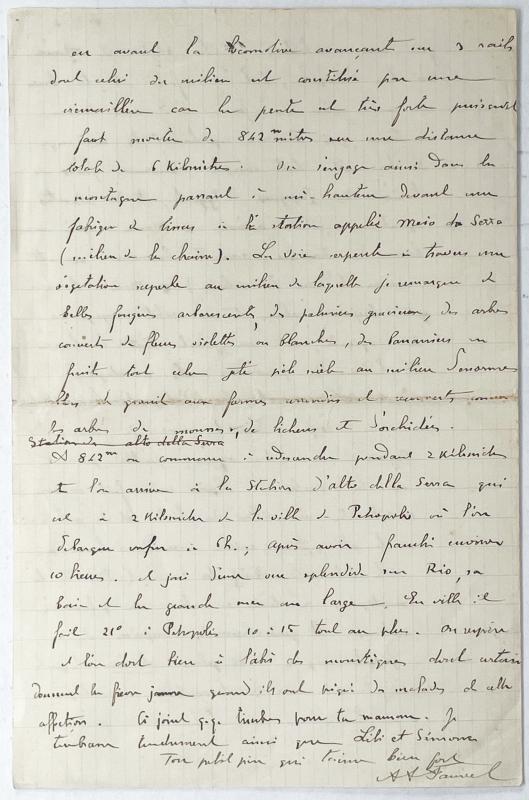 en avant la locomotive avançant sur 3 rails
dont celui du milieu est constitué par une
crémaillère car la pente est très forte puisqu'il
faut monter de 842 mètres sur une distance
totale de 6 kilomètres. On s'engage ainsi dans la
montagne passant à mi-hauteur devant une
fabrique de tissus à la station appelée Meio da Serra
(milieu de la chaine). La voie serpente à travers une
végétation superbe au milieu de laquelle je remarque de
belles fougères arborescentes, des palmiers gracieux, des arbres
couverts de fleurs violettes ou blanches, des bananiers en
fruits tout cela jeté pêle mêle au milieu d'énormes
blocs de granit aux formes arrondies et recouverts comme
les arbres de mousses, de lichens et d'orchidées.
Station de alto della Serra
A 842m on commence à redescendre pendant 2 kilomètres
et l'on arrive à la station d'alto della Serra qui
est à 2 kilomètres de la ville de Petropolis où l'on
débarque enfin à 6h.; après avoir franchi environ
10 lieues. et joui d'une vue splendide sur Rio, sa
baie et la grande mer au large. En ville il
fait 21° à Petropolis 10 à 15 tout au plus. On respire
et l'on dort bien à l'abri des moustiques dont certains
donnent la fièvre jaune quand ils ont piqué des malades de cette
affection. Ci joint qqs timbres pour ta maman. Je
t'embrasse tendrement ainsi que Lili et Simone
Ton petit père qui t'aime bien fort